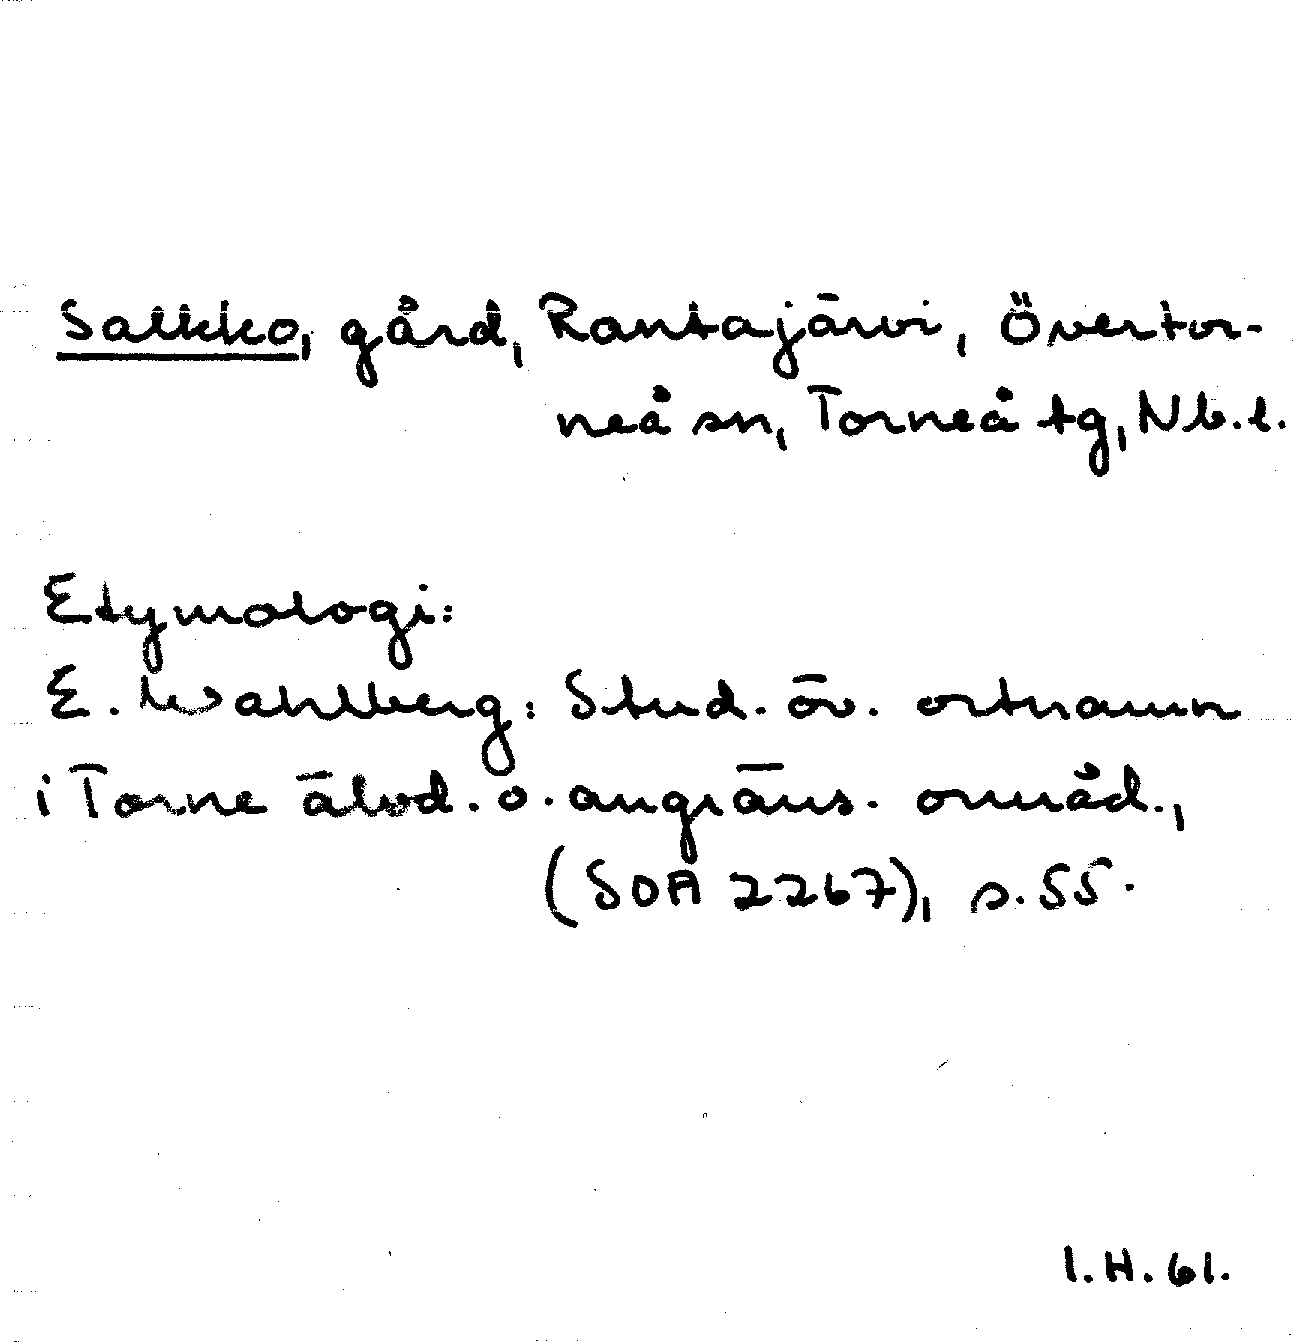 Salkko, gård, Rantajärvi, Övertor-
neå sn, Torneå tg, Nb.l.
Etymologi:
E. Wahlberg: Stud. öv. ortnamn
i Torne älvd. o. angräns. områd.,
(SOA 2267), s. 55.
I.H. 61.